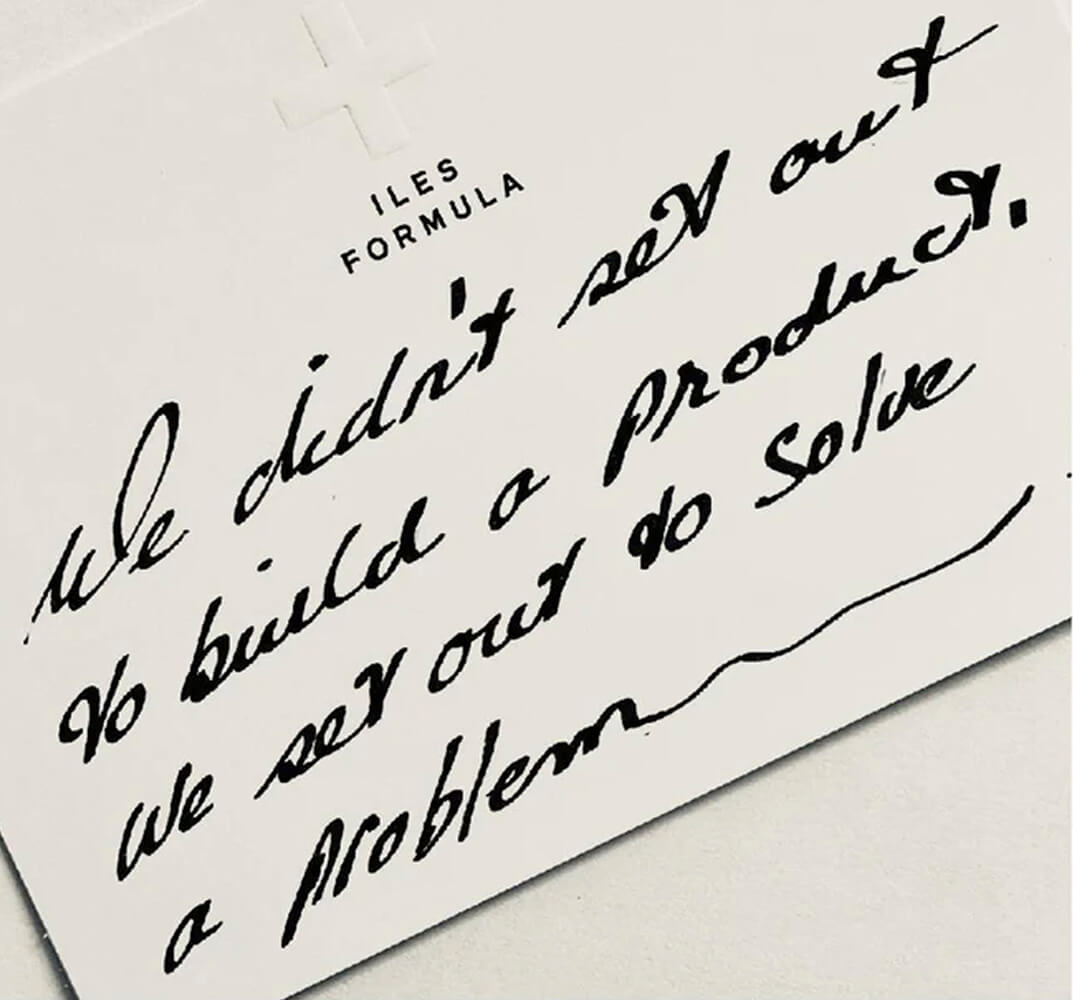 ILES
FORMULA
We didn't set out
to build a product,
we set out to solve
a problem